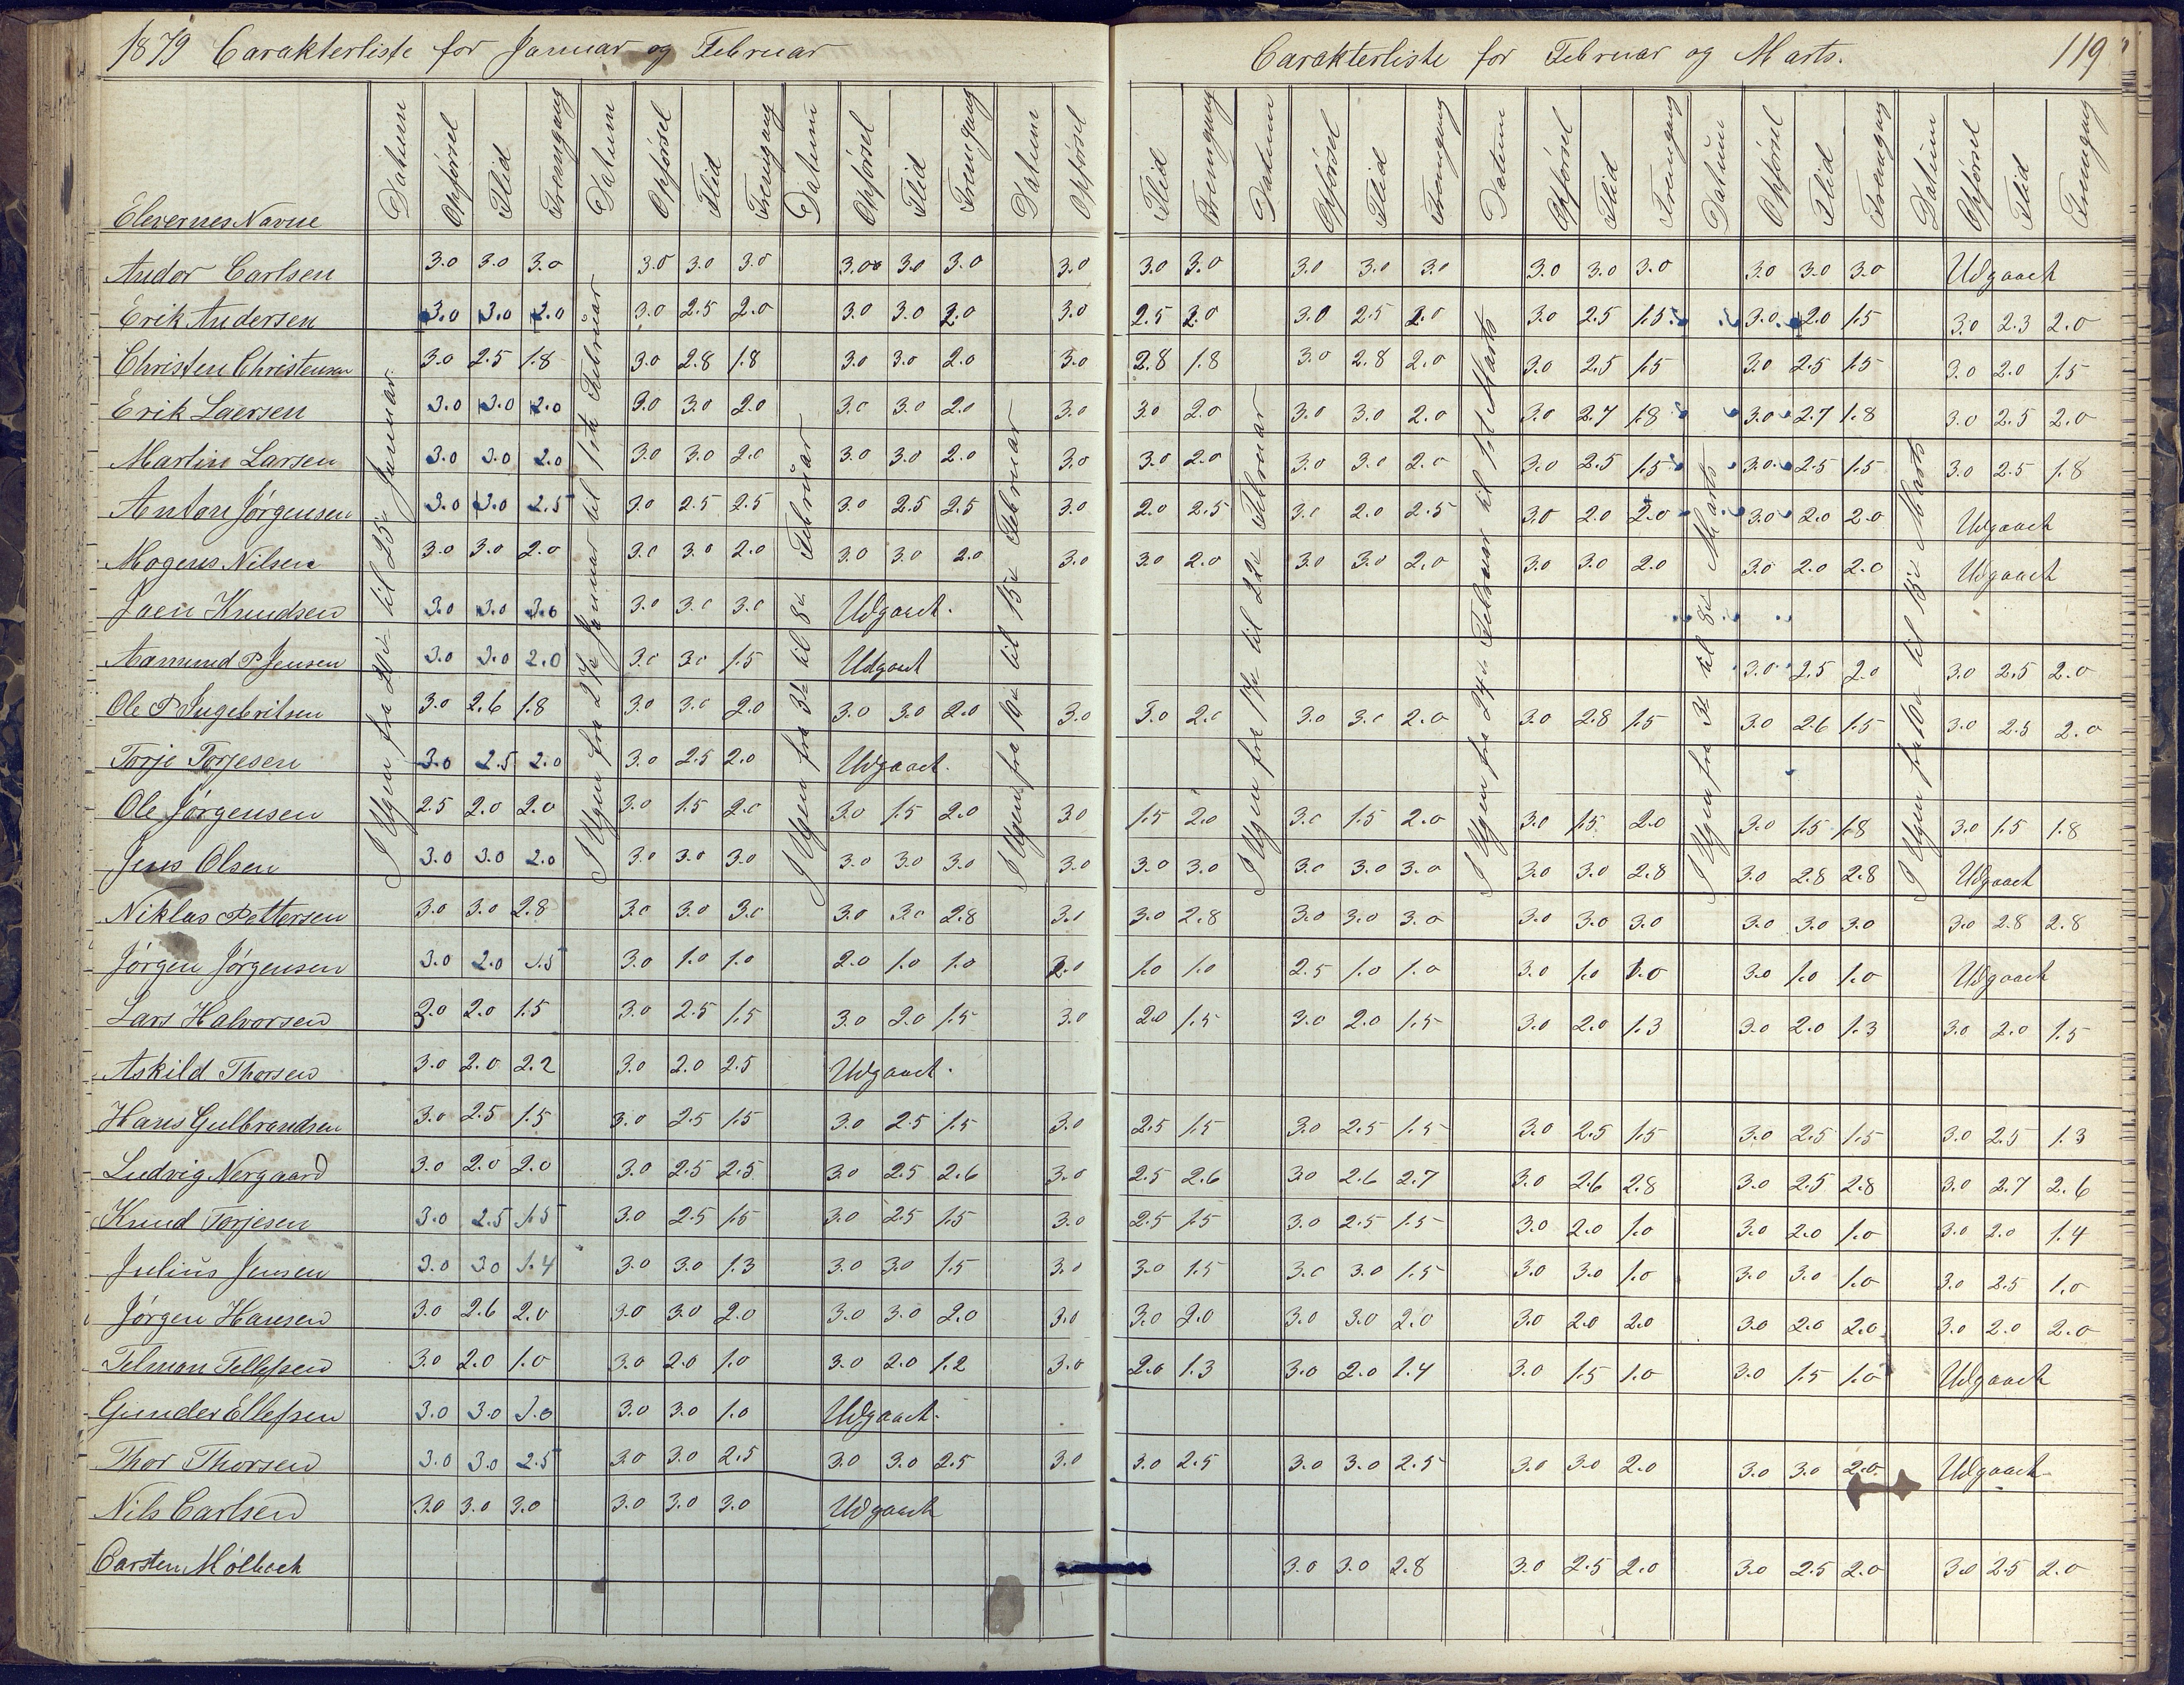 1879 Carakterliste for Januar og Februar
Carakterliste for Februar og Marts. 119
Elevernes Navne Datum Opførsel Flid Fremgang Datum Opførsel Flid Fremgang Datum Opførsel Flid Fremgang Datum Opførsel Flid Fremgang Datum Opførsel Flid Fremgang Datum Opførsel Flid Fremgang Datum Opførsel Flid Fremgang Datum Opførsel Flid Fremgang
I Ugen fra 20de til 25de Januar
I Ugen fra 27de Januar til 1ste Februar
I Ugen fra 3de til 8de Februar
I Ugen fra 10de til 15de Februar
I Ugen fra 17de til 22de Februar
I Ugen fra 24de Februar til 1st Marts
I Ugen fra 3de til 8de Marts
I Ugen fra 10de til 15de Marts
Andor Carlsen 3.0 3.0 3.0 3.0 3.0 3.0 3.0 3.0 3.0 3.0 3.0 3.0 3.0 3.0 3.0 3.0 3.0 3.0 3.0 3.0 3.0 Udgaaet
Erik Andersen 3.0 3.0 2.0 3.0 2.5 2.0 3.0 3.0 2.0 3.0 2.5 2.0 3.0 2.5 2.0 3.0 2.5 1.5 3.0 2.0 1.5 3.0 2.3 2.0
Christen Christensen 3.0 2.5 1.8 3.0 2.8 1.8 3.0 3.0 2.0 3.0 2.8 1.8 3.0 2.8 2.0 3.0 2.5 1.5 3.0 2.5 1.5 3.0 2.0 1.5
Erik Laersen 3.0 3.0 2.0 3.0 3.0 2.0 3.0 3.0 2.0 3.0 3.0 2.0 3.0 3.0 2.0 3.0 2.7 1.8 3.0 2.7 1.8 3.0 2.5 2.0
Martin Larsen 3.0 3.0 2.0 3.0 3.0 2.0 3.0 3.0 2.0 3.0 3.0 2.0 3.0 3.0 2.0 3.0 2.5 1.5 3.0 2.5 1.5 3.0 2.5 1.8
Anton Jørgensen 3.0 3.0 2.5 3.0 2.5 2.5 3.0 2.5 2.5 3.0 2.0 2.5 3.0 2.0 2.5 3.0 2.0 2.0 3.0 2.0 2.0 Udgaaet
Mogens Nilsen 3.0 3.0 2.0 3.0 3.0 2.0 3.0 3.0 2.0 3.0 3.0 2.0 3.0 3.0 2.0 3.0 3.0 2.0 3.0 2.0 2.0 Udgaaet
Joen Knudsen 3.0 3.0 3.0 3.0 3.0 3.0 Udgaaet.
Aamund P Jensen 3.0 3.0 2.0 3.0 3.0 1.5 Udgaaet 3.0 2.5 2.0 3.0 2.5 2.0
Ole P Ingebritsen 3.0 2.6 1.8 3.0 3.0 2.0 3.0 3.0 2.0 3.0 3.0 2.0 3.0 3.0 2.0 3.0 2.8 1.5 3.0 2.6 1.5 3.0 2.5 2.0
Torje Torjesen 3.0 2.5 2.0 3.0 2.5 2.0 Udgaaet.
Ole Jørgensen 2.5 2.0 2.0 3.0 1.5 2.0 3.0 1.5 2.0 3.0 1.5 2.0 3.0 1.5 2.0 3.0 1.5 2.0 3.0 1.5 1.8 3.0 1.5 1.8
Jens Olsen 3.0 3.0 2.0 3.0 3.0 3.0 3.0 3.0 3.0 3.0 3.0 3.0 3.0 3.0 3.0 3.0 3.0 2.8 3.0 2.8 2.8 Udgaaet
Niklas Pettersen 3.0 3.0 2.8 3.0 3.0 3.0 3.0 3.0 2.8 3.0 3.0 2.8 3.0 3.0 3.0 3.0 3.0 3.0 3.0 3.0 3.0 3.0 2.8 2.8
Jørgen Jørgensen 3.0 2.0 1.5 3.0 1.0 1.0 2.0 1.0 1.0 2.0 1.0 1.0 2.5 1.0 1.0 3.0 1.0 1.0 3.0 1.0 1.0 Udgaaet
Lars Halvorsen 3.0 2.0 1.5 3.0 2.5 1.5 3.0 2.0 1.5 3.0 2.0 1.5 3.0 2.0 1.5 3.0 2.0 1.3 3.0 2.0 1.3 3.0 2.0 1.5
Askild Thorsen 3.0 2.0 2.2 3.0 2.0 2.5 Udgaaet.
Hans Gulbrandsen 3.0 2.5 1.5 3.0 2.5 1.5 3.0 2.5 1.5 3.0 2.5 1.5 3.0 2.5 1.5 3.0 2.5 1.5 3.0 2.5 1.5 3.0 2.5 1.3
Ludvig Nergaard 3.0 2.0 2.0 3.0 2.5 2.5 3.0 2.5 2.6 3.0 2.5 2.6 3.0 2.6 2.7 3.0 2.6 2.8 3.0 2.5 2.8 3.0 2.7 2.6
Knud Torjesen 3.0 2.5 1.5 3.0 2.5 1.5 3.0 2.5 1.5 3.0 2.5 1.5 3.0 2.5 1.5 3.0 2.0 1.0 3.0 2.0 1.0 3.0 2.0 1.4
Julius Jensen 3.0 3.0 1.4 3.0 3.0 1.3 3.0 3.0 1.5 3.0 3.0 1.5 3.0 3.0 1.5 3.0 3.0 1.0 3.0 3.0 1.0 3.0 2.5 1.0
Jørgen Hansen 3.0 2.6 2.0 3.0 3.0 2.0 3.0 3.0 2.0 3.0 3.0 2.0 3.0 3.0 2.0 3.0 2.0 2.0 3.0 2.0 2.0 3.0 2.0 2.0
Telman Tellefsen 3.0 2.0 1.0 3.0 2.0 1.0 3.0 2.0 1.2 3.0 2.0 1.3 3.0 2.0 1.4 3.0 1.5 1.0 3.0 1.5 1.0 Udgaaet
Gunder Ellefsen 3.0 3.0 1.0 3.0 3.0 1.0 Udgaaet.
Thor Thorsen 3.0 3.0 2.5 3.0 3.0 2.5 3.0 3.0 2.5 3.0 3.0 2.5 3.0 3.0 2.5 3.0 3.0 2.0 3.0 3.0 2.0 Udgaaet
Nils Carlsen 3.0 3.0 3.0 3.0 3.0 3.0 Udgaaet
Carsten Mølbach 3.0 3.0 2.8 3.0 2.5 2.0 3.0 2.5 2.0 3.0 2.5 2.0